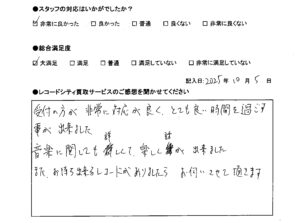 ●スタッフの対応はいかがでしたか?
☑ 非常に良かった □ 良かった □ 普通 □ 良くない □ 非常に良くない
●総合満足度
☑ 大満足 □ 満足 □ 普通 □ 満足していない □ 非常に満足していない
記入日:2025年10月5日
●レコードシティ買取サービスのご感想を聞かせてください
受付の方が非常に対応が良く、とても良い時間を過ごす
事が出来ました。
音楽に関しても詳しくて、楽しく話が出来ました
また、お持ち出来るレコードがありましたら お伺いさせて頂きます